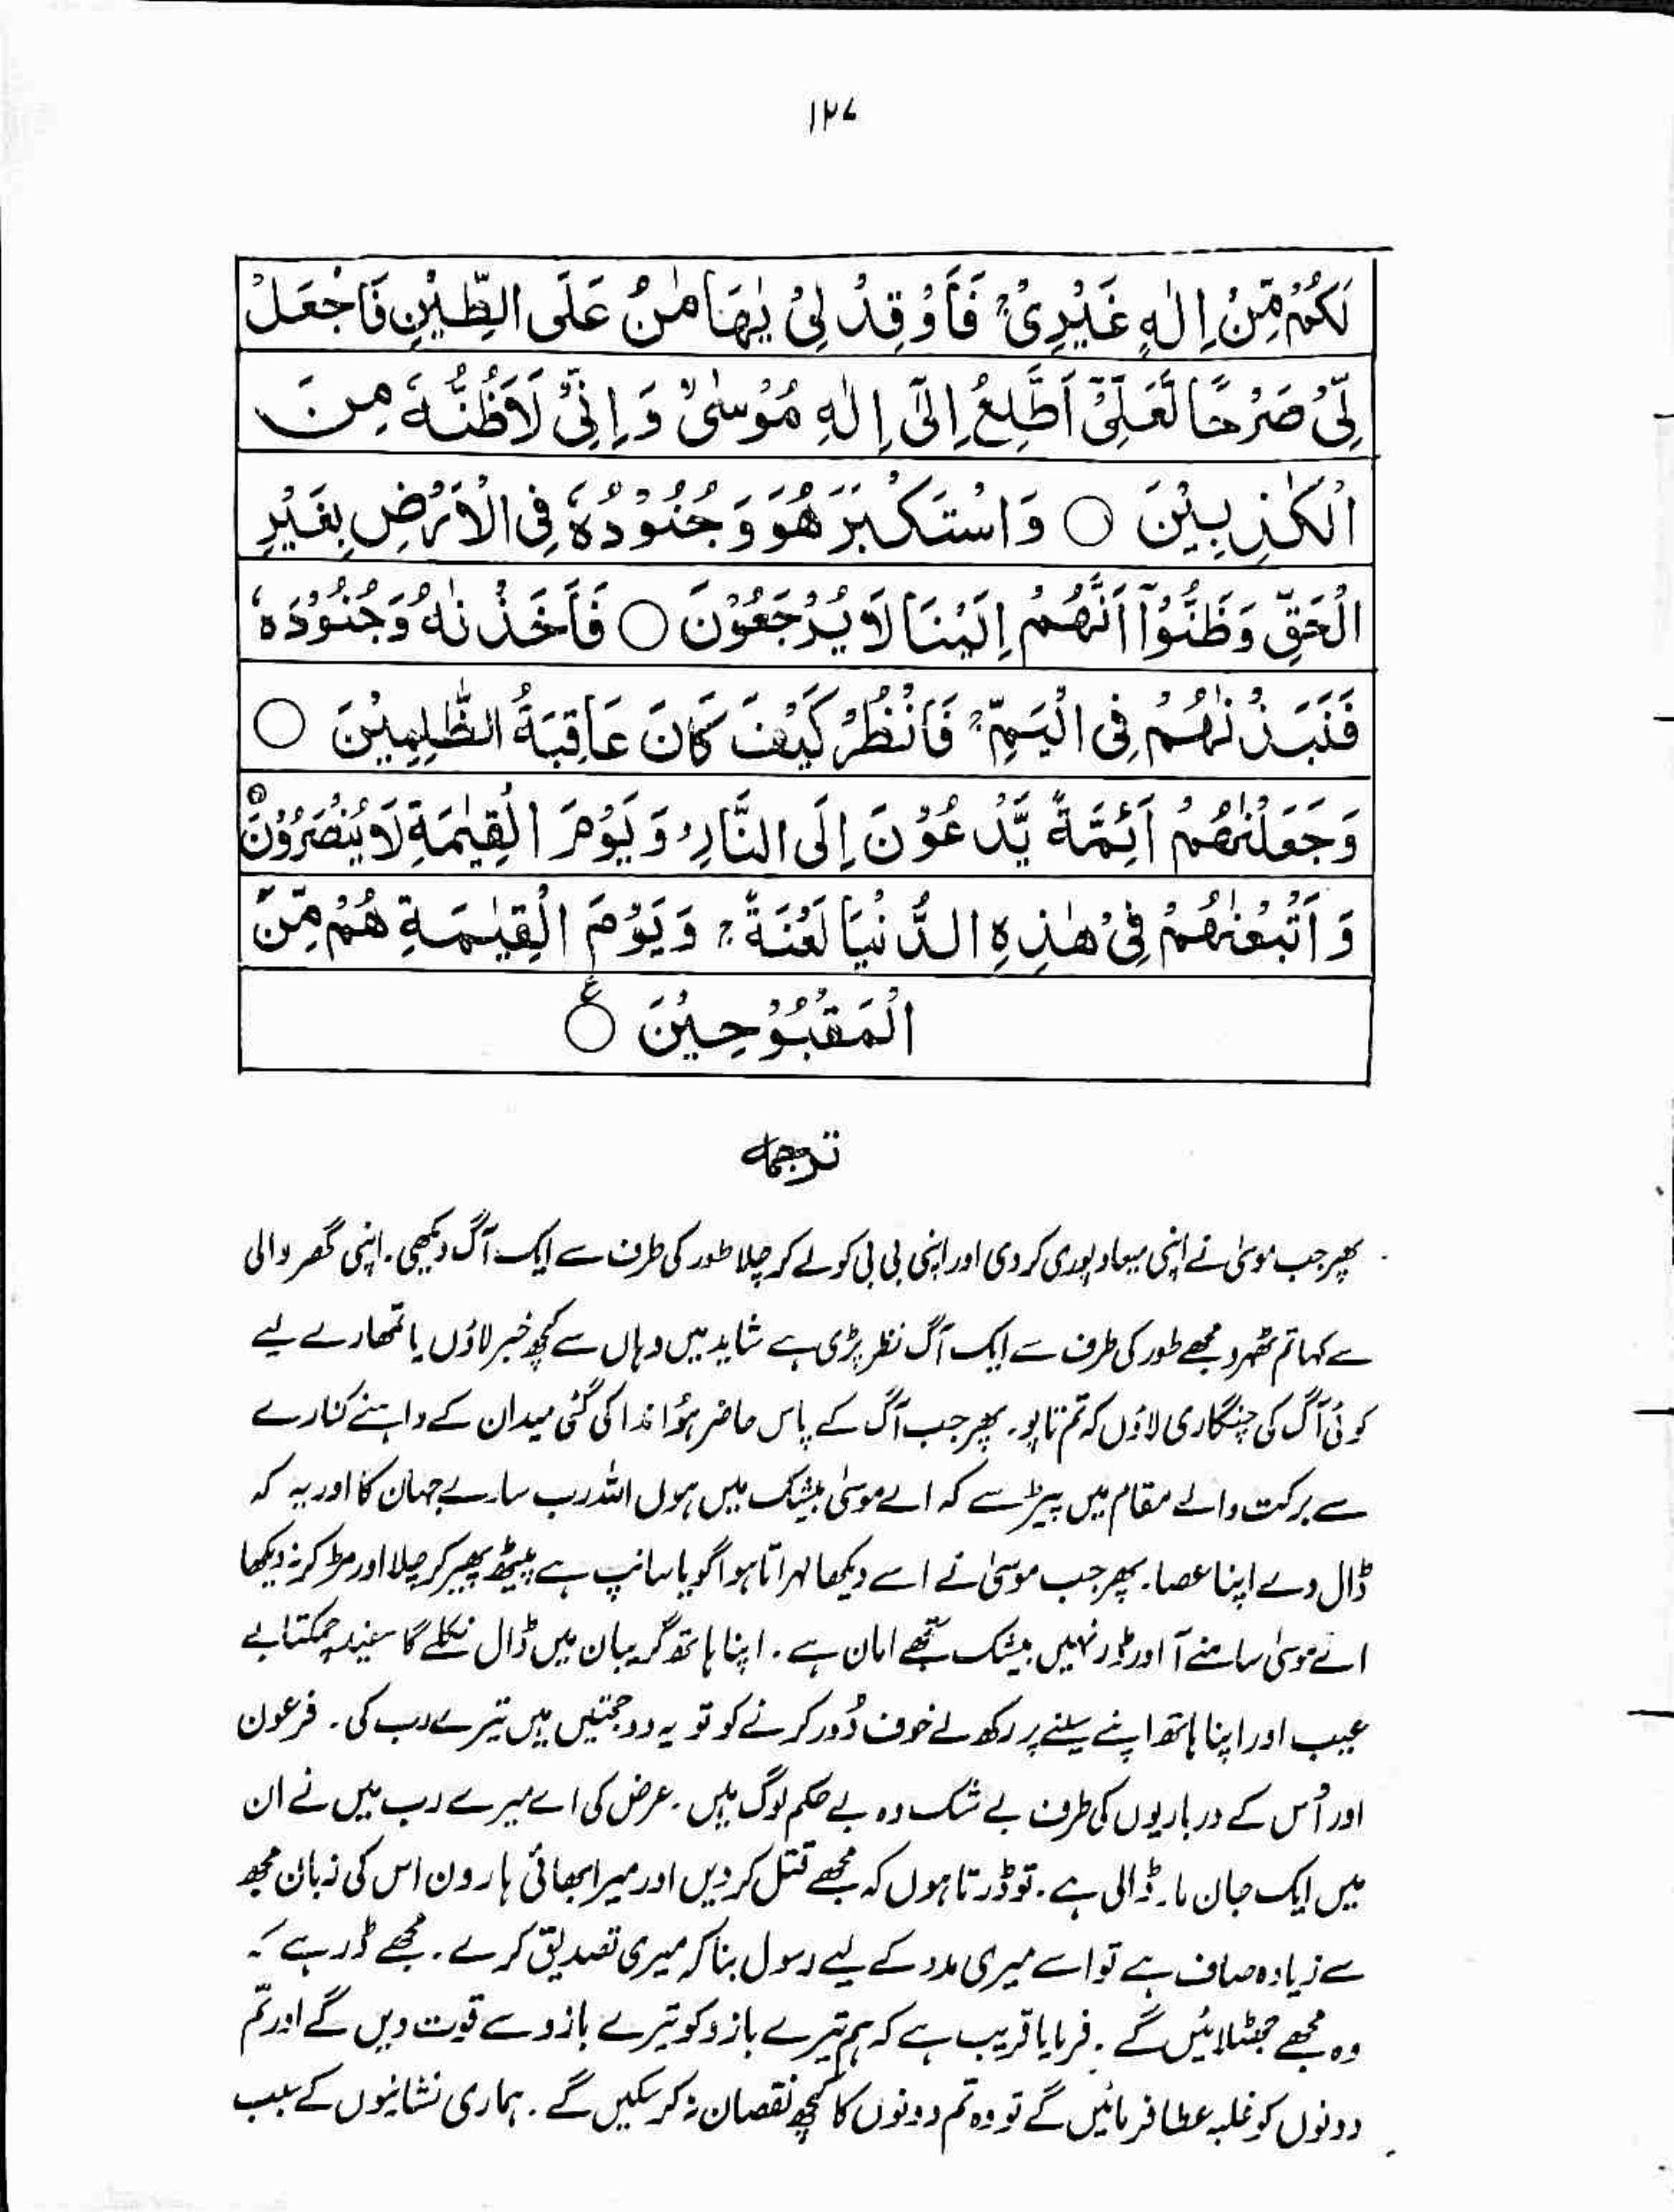 ۱۲۷
لَكُمْ مِّنْ اِلٰهٍ غَيْرِىْ ۚ فَاَوْقِدْ لِىْ يٰهَامٰنُ عَلَى الطِّيْنِ فَاجْعَلْ
لِّىْ صَرْحًا لَّعَلِّىْٓ اَطَّلِعُ اِلٰٓى اِلٰهِ مُوْسٰىۙ وَ اِنِّىْ لَاَظُنُّهٗ مِنَ
الْكٰذِبِيْنَ ○ وَ اسْتَكْبَرَ هُوَ وَ جُنُوْدُهٗ فِى الْاَرْضِ بِغَيْرِ
الْحَقِّ وَ ظَنُّوْٓا اَنَّهُمْ اِلَيْنَا لَا يُرْجَعُوْنَ ○ فَاَخَذْنٰهُ وَ جُنُوْدَهٗ
فَنَبَذْنٰهُمْ فِى الْيَمِّ ۚ فَانْظُرْ كَيْفَ كَانَ عَاقِبَةُ الظّٰلِمِيْنَ ○
وَ جَعَلْنٰهُمْ اَئِمَّةً يَّدْعُوْنَ اِلَى النَّارِ ۚ وَ يَوْمَ الْقِيٰمَةِ لَا يُنْصَرُوْنَ ○
وَ اَتْبَعْنٰهُمْ فِىْ هٰذِهِ الدُّنْيَا لَعْنَةً ۚ وَ يَوْمَ الْقِيٰمَةِ هُمْ مِّنَ
الْمَقْبُوْحِيْنَ ○ ع
ترجمہ
پھر جب موسیٰ نے اپنی میعاد پوری کر دی اور اپنی بی بی کو لے کر چلا طور کی طرف سے ایک آگ دیکھی۔ اپنی گھر والی
سے کہا تم ٹھہرو مجھے طور کی طرف سے ایک آگ نظر پڑی ہے شاید میں وہاں سے کچھ خبر لاؤں یا تمھارے لیے
کوئی آگ کی چنگاری لاؤں کہ تم تاپو۔ پھر جب آگ کے پاس حاضر ہوُا ندا کی گئی میدان کے داہنے کنارے
سے برکت والے مقام میں پیڑ سے کہ اے موسیٰ بیشک میں ہوں اللہ رب سارے جہان کا اور یہ کہ
ڈال دے اپنا عصا۔ پھر جب موسیٰ نے اسے دیکھا لہراتا ہوا گویا سانپ ہے پیٹھ پھیر کر چلا اور مڑ کر نہ دیکھا
اے موسیٰ سامنے آ اور ڈر نہیں بیشک تجھے امان ہے۔ اپنا ہاتھ گریبان میں ڈال نکلے گا سفید چمکتا بے
عیب اور اپنا ہاتھ اپنے سینے پر رکھ لے خوف دُور کرنے کو تو یہ دو حجتیں ہیں تیرے رب کی۔ فرعون
اور اُس کے درباریوں کی طرف بے شک وہ بے حکم لوگ ہیں۔ عرض کی اے میرے رب میں نے ان
میں ایک جان مار ڈالی ہے۔ تو ڈرتا ہوں کہ مجھے قتل کر دیں اور میرا بھائی ہارون اس کی زبان مجھ
سے زیادہ صاف ہے تو اسے میری مدد کے لیے رسول بنا کہ میری تصدیق کرے۔ مجھے ڈر ہے کہ
وہ مجھے جھٹلائیں گے۔ فرمایا قریب ہے کہ ہم تیرے بازو کو تیرے بازو سے قوت دیں گے اور تم
دونوں کو غلبہ عطا فرمائیں گے تو وہ تم دونوں کا کچھ نقصان نہ کر سکیں گے۔ ہماری نشانیوں کے سبب